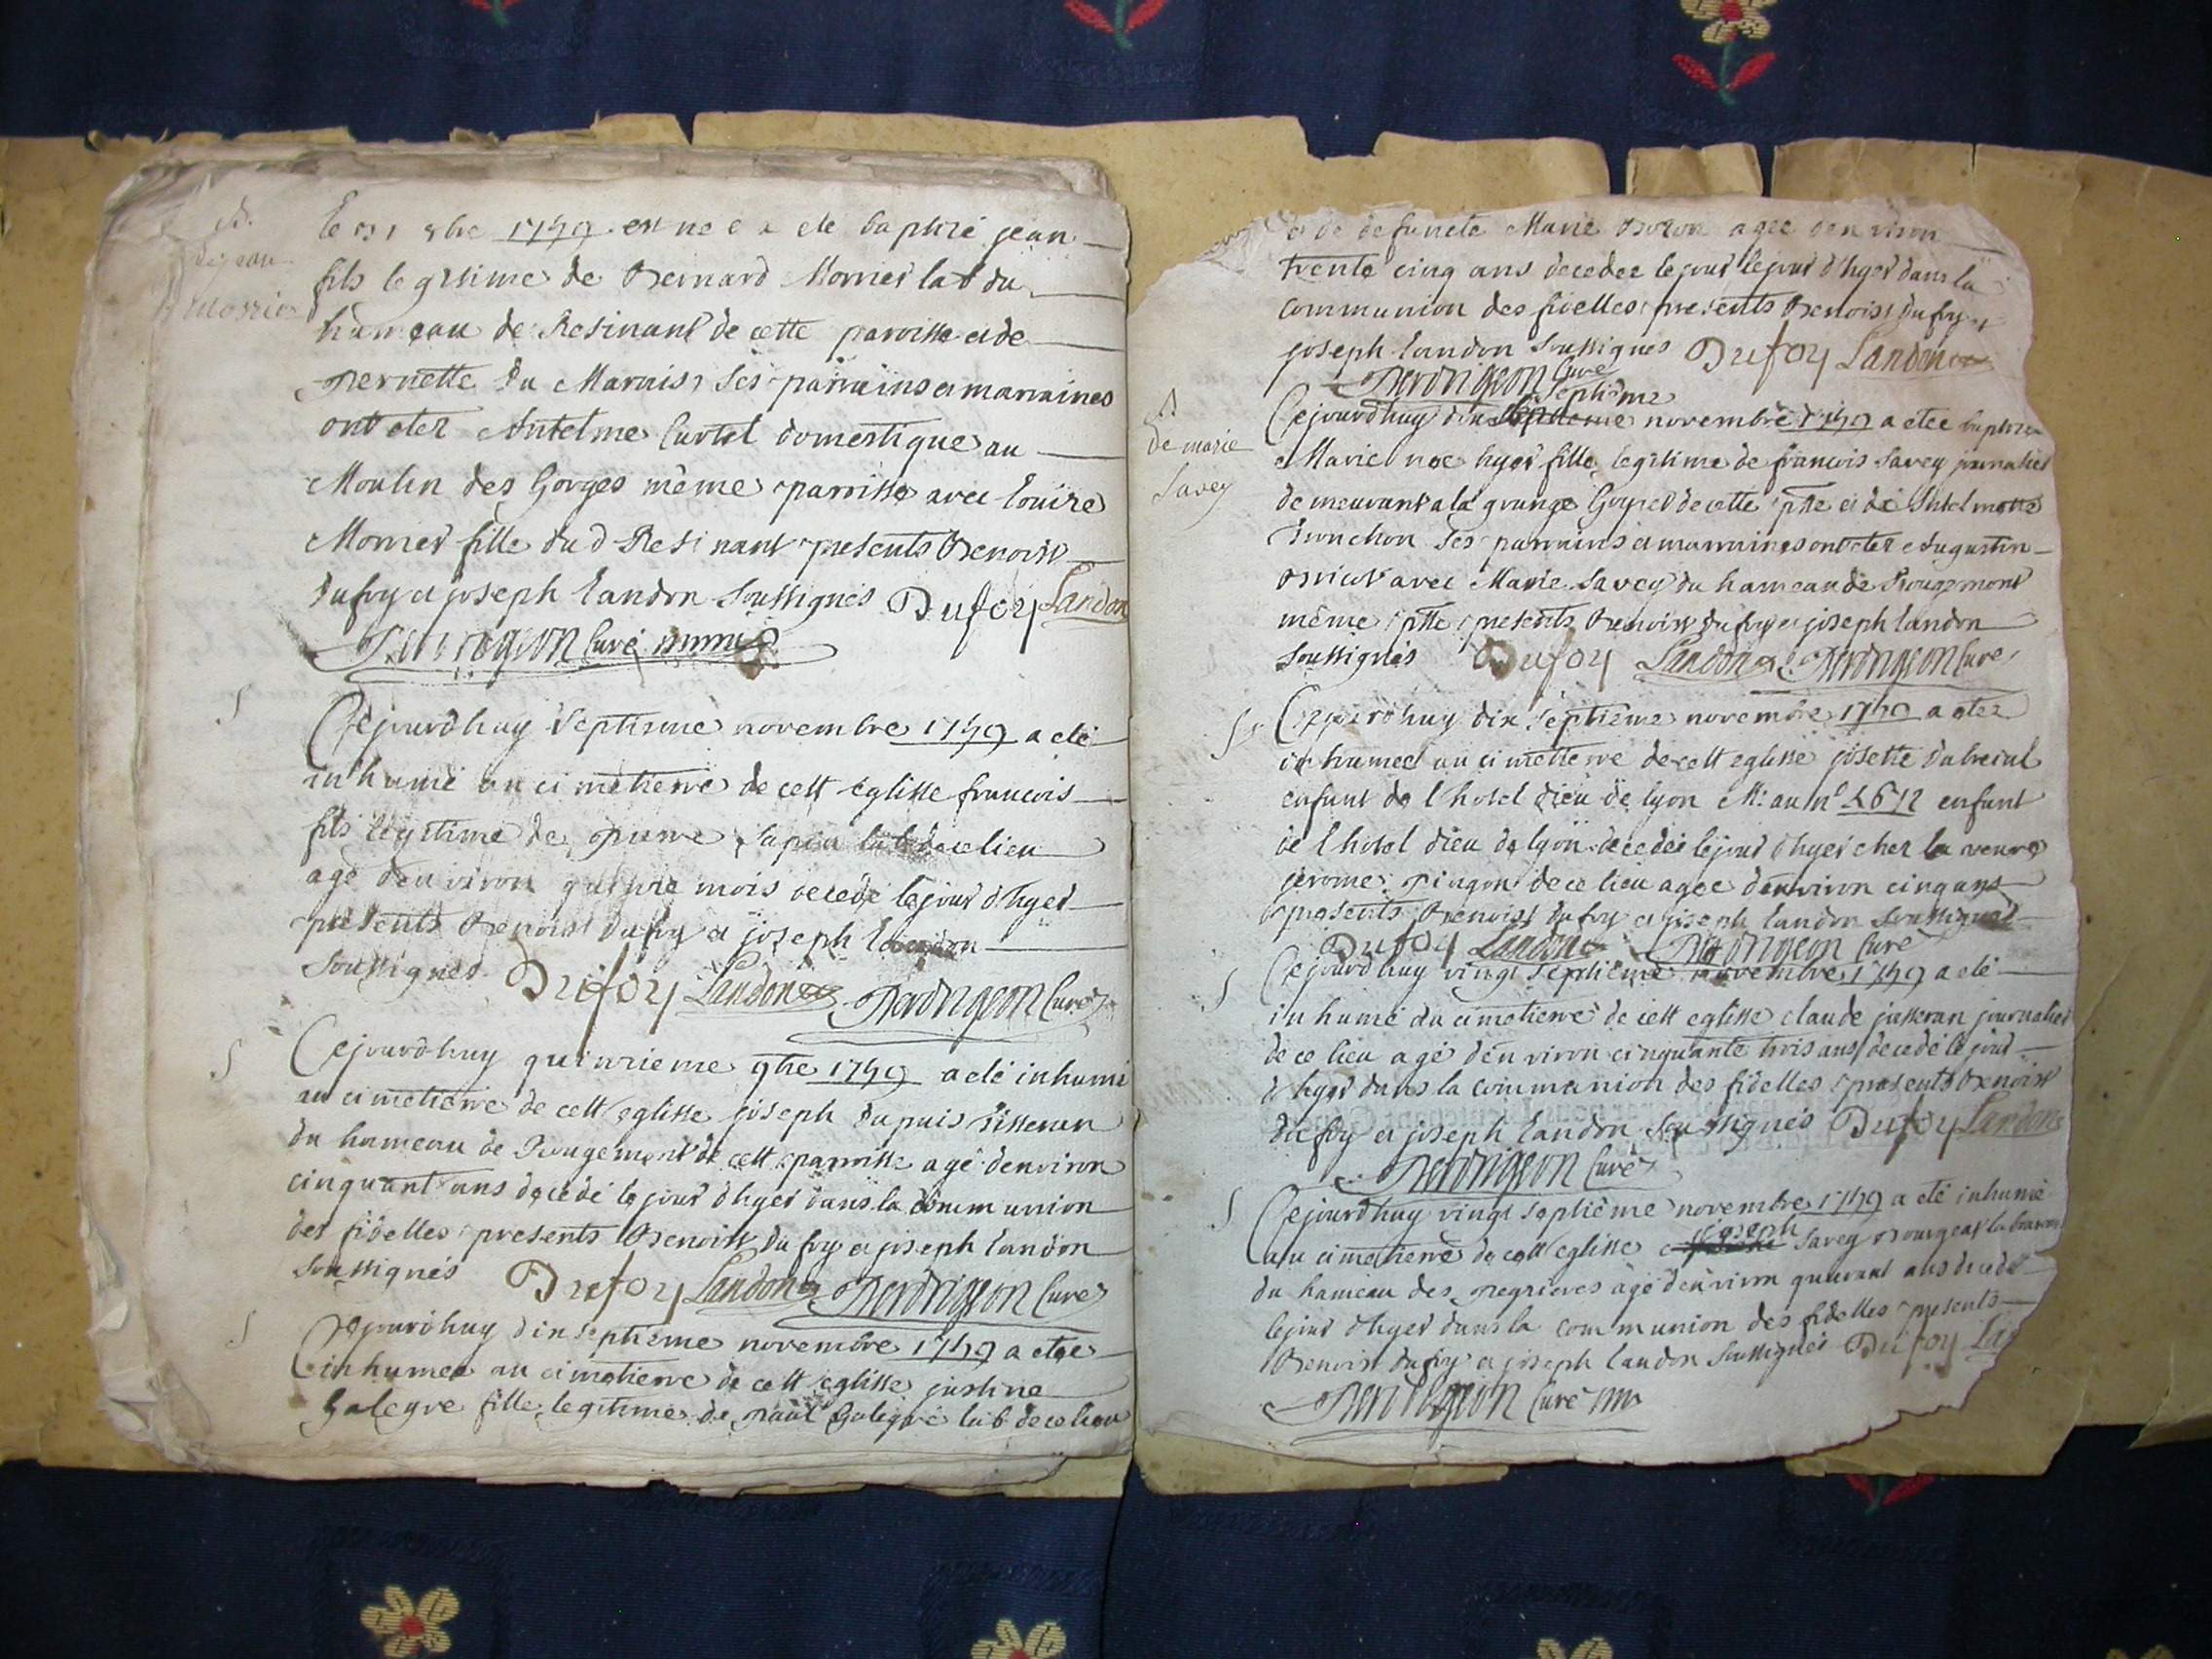 B.
de jean
Morrier
le 31 8bre 1749 est ne e a ete baptizé jean
fils legitime de Bernard Morrier lab du
hameau de Resinant de cette paroisse et de
pernette du Marais, ses parrains et marraines
ont etez Antelme Curtet domestique au
Moulin des Gorges même parroisse avec Louize
Morrier fille du d Resinant presents Benoist
Dufoy et joseph Landon soussignés Dufoy Landon
Perdrigeon Curé
S
Cejourdhuy septieme novembre 1749 a eté
inhumé au cimetierre de cett eglisse francois
fils legitime de pierre sapin lab de ce lieu
agé denviron quinze mois decedé lejour dhyer
presents Benoist Dufoy et joseph Landon
soussignes Dufoy Landon Perdrigeon Curé
S
Cejourdhuy quinzieme 9bre 1749 a eté inhumé
au cimetierre de cett eglisse joseph Dupuis tisseran
du hameau de Rougemont de cett parroisse agé denviron
cinquant ans decedé le jour dhyer dans la communion
des fidelles presents Benoist Dufoy et joseph Landon
soussignés Dufoy Landon Perdrigeon Curé
S
Cejourdhuy dix septieme novembre 1749 a etee
inhumee au cimetierre de cett eglisse justine
Galegre fille legitime de paul Galegre lab de ce lieu
et de defuncte Marie Boron agee denviron
trente cinq ans decedee lejour lejour dhyer dans la
communion des fidelles presents Benoist Dufoy et
joseph Landon soussignes Dufoy Landon
Perdrigeon Curé
B
de marie
Savey
septieme
Cejourdhuy dix novembre 1749 a etee baptizee
Marie nee hyer fille legitime de francois Savey journalier
demeurant a la grange de cette psse et de Antelmette
Ses parrains et marraines ont etez Augustin
avec Marie Savey du hameau de Rougemont
même psse presents Benoist Dufoy et joseph Landon
soussignés Dufoy Landon Perdrigeon Curé
S
Cejourdhuy dix septieme novembre 1749 a etee
inhumee au cimetierre de cett eglisse josette Dubreial
enfant de l hotel dieu de lyon M: au n° enfant
de l hotel dieu de lyon decedée lejour dhyer chez la veuve
jerome pingon de ce lieu agee denviron cinq ans
presents Benoist Dufoy et joseph Landon soussignes
Dufoy Landon Perdrigeon Curé
S
Cejourdhuy vingt septieme novembre 1749 a eté
inhumé au cimetierre de cett eglisse claude jasseran journalier
de ce lieu agé denviron cinquante trois ans decedé le jour
dhyer dans la communion des fidelles presents Benoist
Dufoy et joseph Landon soussignés Dufoy Landon
Perdrigeon Curé
S
Cejourdhuy vingt septieme novembre 1749 a eté inhumé
joseph
au cimetierre de cett eglisse Savey Bourgeat
du hameau des agé denviron quarant ans decedé
lejour dhyer dans la communion des fidelles presents
Benoist Dufoy et joseph Landon soussignes Dufoy
Perdrigeon Curé